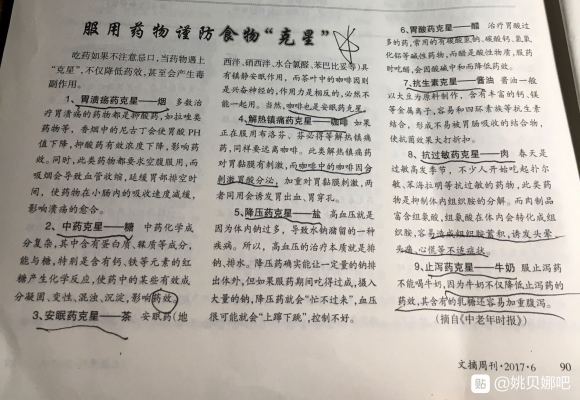 服用药物谨防食物“克星”
吃药如果不注意忌口,当药物遇上
“克星”,不仅降低药效,甚至会产生毒
副作用。
1、胃溃疡药克星——烟 多数治
疗胃溃疡的药物都是抑酸药,如拉唑类
药物等,香烟中的尼古丁会使胃酸PH
值下降,抑酸药有效浓度下降,影响药
效。同时,此类药物都要求空腹服用,而
吸烟会导致血管收缩,延缓胃部排空时
间,使药物在小肠内的吸收速度减缓,
影响溃疡的愈合。
2、中药克星——糖 中药化学成
分复杂,其中含有蛋白质、鞣质等成分,
能与糖,特别是含有钙、铁等元素的红
糖产生化学反应,使药中的某些有效成
分凝固、变性、混浊、沉淀,影响药效。
3、安眠药克星——茶 安眠药(地
西泮、硝西泮、水合氯醛、苯巴比妥等)具
有镇静安眠作用,而茶叶中的咖啡因则
是兴奋神经的,作用力是相反的,必然不
能一起用。当然,咖啡也是安眠药克星。
4、解热镇痛药克星——咖啡 如果
正在服用布洛芬、芬必得等解热镇痛
药,同样要远离咖啡。此类解热镇痛药
对胃黏膜有刺激,而咖啡中的咖啡因会
刺激胃酸分泌,加重对胃黏膜刺激,两
者同用会诱发胃出血、胃穿孔。
5、降压药克星——盐 高血压就是
因为体内钠过多,导致水钠潴留的一种
疾病。所以,高血压的治疗本质就是排
钠、排水。降压药确实能让一定量的钠排
出体外,但如果服药期间吃得过咸,摄入
大量的钠,降压药就会“忙不过来”,血压
很可能就会“上蹿下跳”,控制不好。
6、胃酸药克星——醋 治疗胃酸过
多的药,常用的有碳酸氢钠、碳酸钙、氢氧
化铝等碱性药物,而醋是酸性物质,服药
时吃醋,会因酸碱中和而降低药效。
7、抗生素克星——酱油 酱油一般
以大豆为原料制作,含有丰富的钙、镁
等金属离子,容易和四环素族等抗生素
结合,形成不易被胃肠吸收的结合物,
使抗菌效果大打折扣。
8、抗过敏药克星——肉 春天是
过敏高发季节,不少人开始吃起扑尔
敏、苯海拉明等抗过敏的药物,此类药
物是抑制体内组织胺的分解。而肉制品
富含组氨酸,组氨酸在体内会转化成组
织胺,容易造成组织胺蓄积,诱发头晕、
头痛、心慌等不适症状。
9、止泻药克星——牛奶 服止泻药
不能喝牛奶,因为牛奶不仅降低止泻药的
药效,其含有的乳糖还容易加重腹泻。
(摘自《中老年时报》)
文摘周刊·2017·6 90
贴 @姚贝娜吧